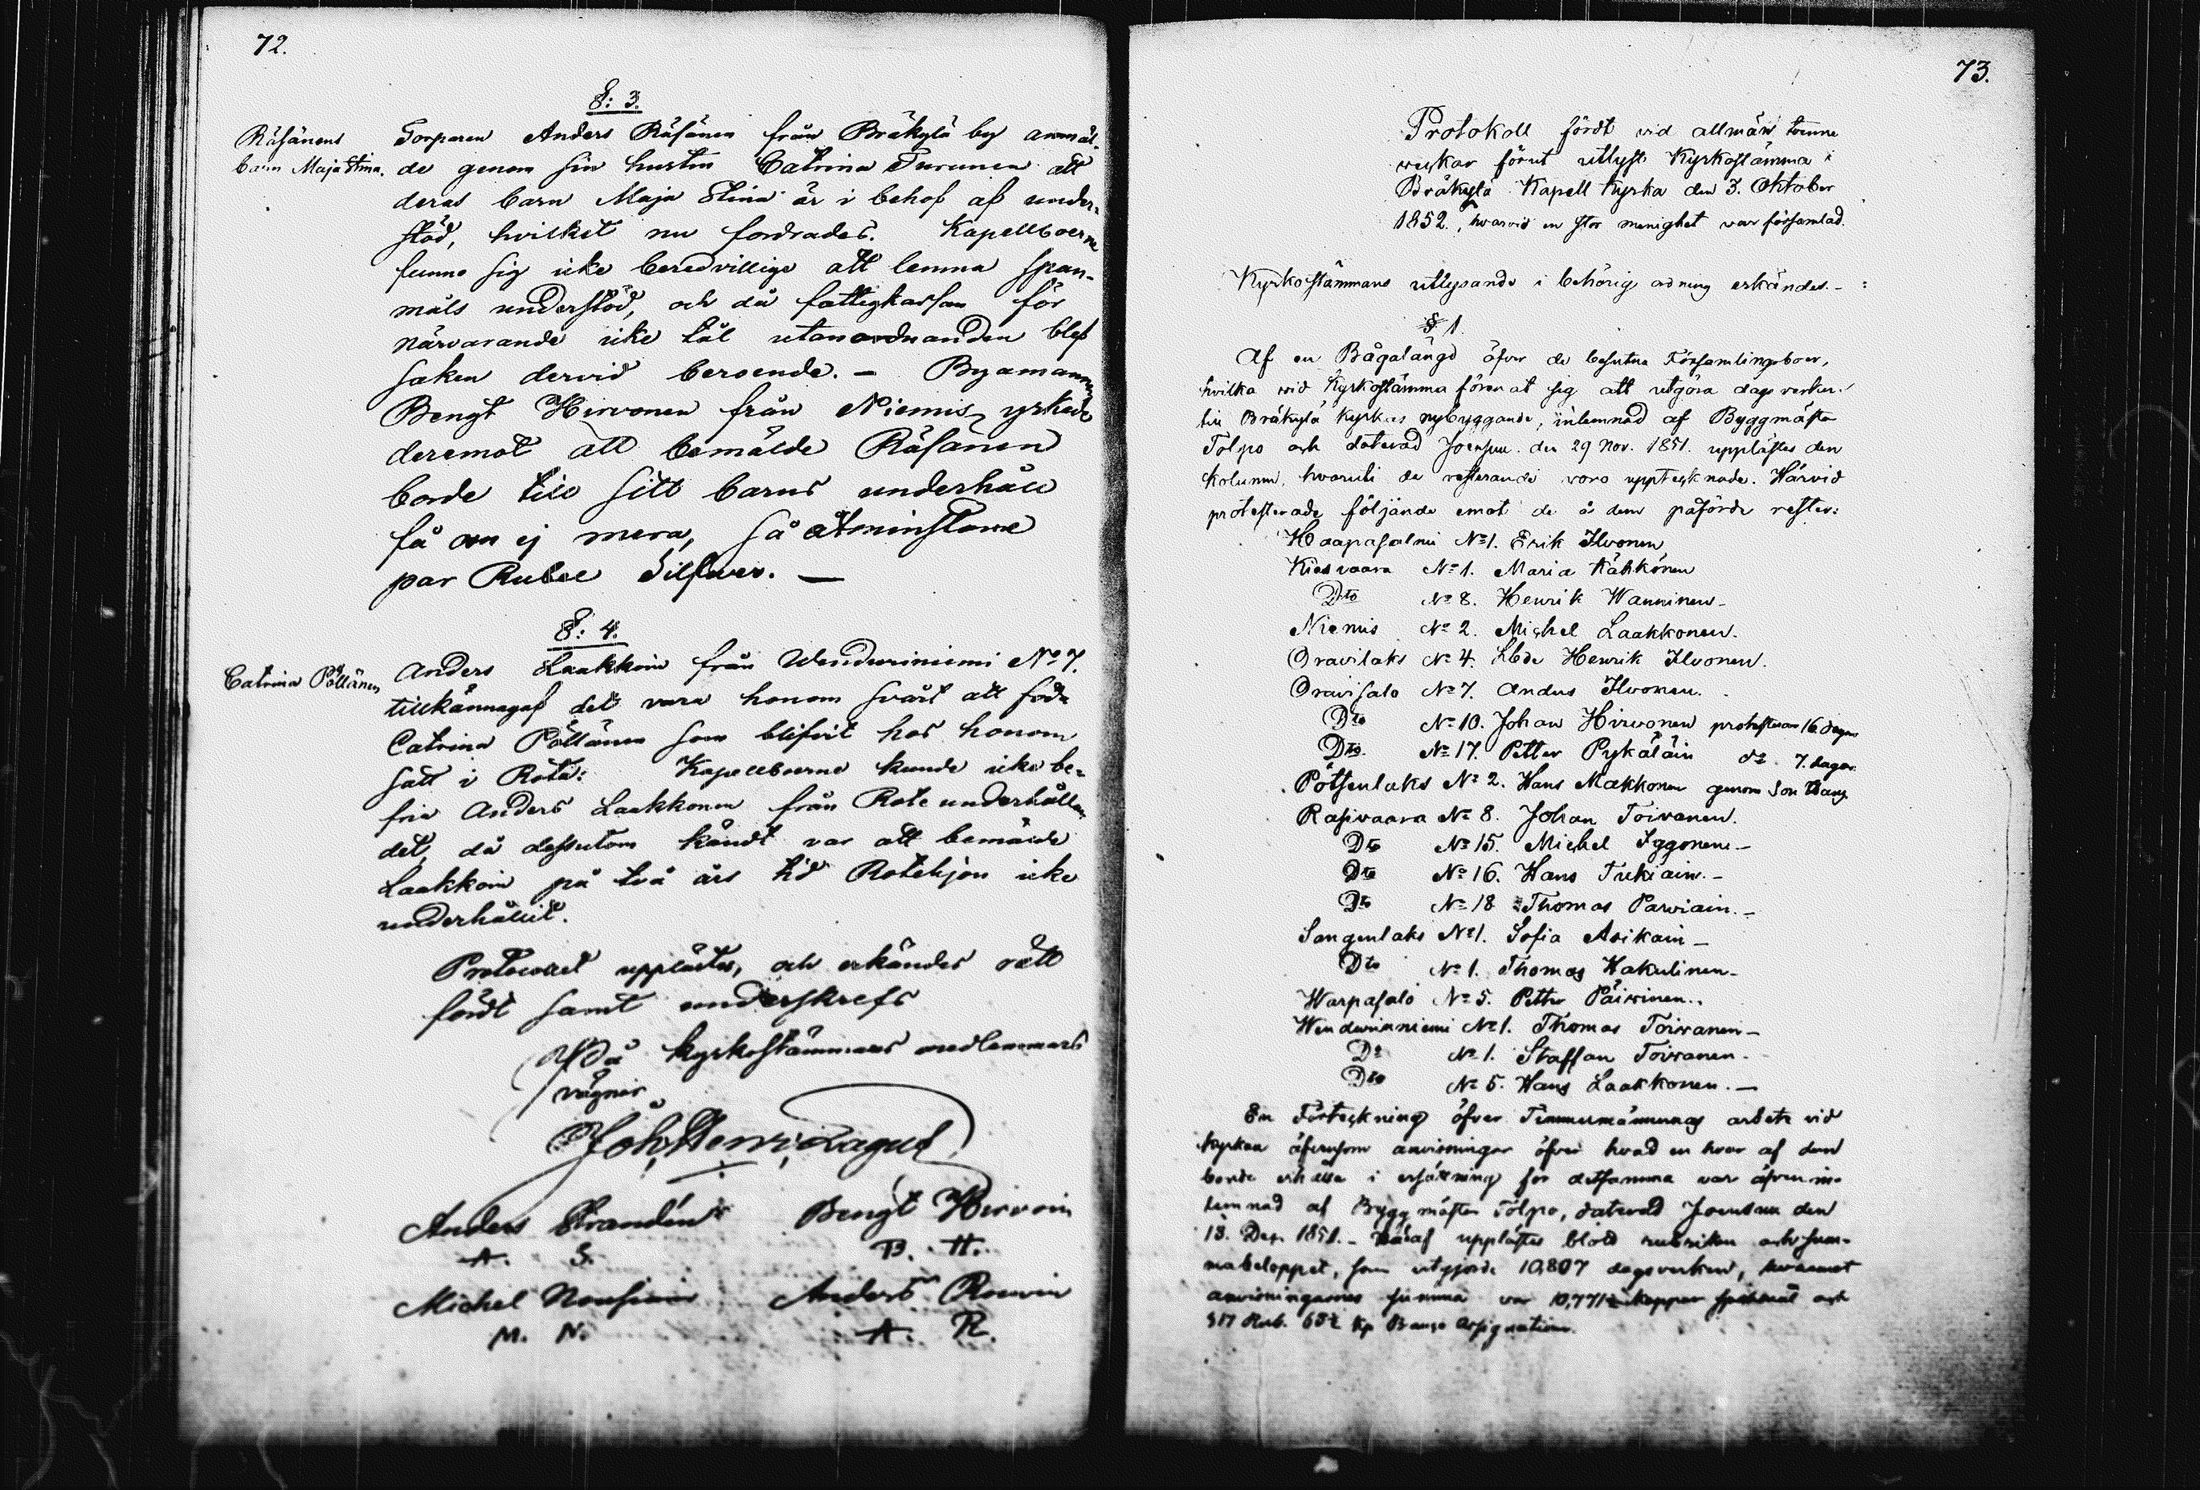 72.
§: 3.
Räsänens
barn Maja Stina.
Torparen Anders Räsänen från Bräkylä by anmäl-
de genom sin hustru Catrina Turunen att
deras barn Maja Stina är i behof af under-
stöd, hvilket nu fordrades. Kapellboerne
funno sig icke beredvillige att lemna span-
måls understöd, och då fattigkassan för
närvarande icke tål utanordnanden blef
saken dervid beroende. — Byamannen
Bengt Hirvonen från Niemis yrkade
deremot att bemälde Räsänen
borde till sitt barns underhåll
få om ej mera, så åtminstone
par Rubel Silfver. —
§: 4.
Catrina Pöllänen
Anders Laakkoin från Wenduriniemi No 7.
tillkännagaf det vara honom svårt att föda
Catrina Pöllänen som blifvit hos honom
satt i Rota: Kapellboerne kunde icke be-
fria Anders Laakkonen från Rote underhållan-
det, då dessutom kändt var att bemälde
Laakkoin på två års tid Rotehjon icke
underhållit.
Protocollet upplästes, och erkändes rätt
fördt samt underskrefs
På kyrkostämmans medlemmars
vägnar
Joh. Henr. Lagus
Anders Strandén Bengt Hirvoin
A. S. B. H.
Michel Nousiain Anders Rouvin
M. N. A. R.
73.
Protokoll fördt vid allmän trenne
veckor förut utlyst Kyrkostämma i
Bräkylä Kapell kyrka den 3. Oktober
1852., hvarvid en stor menighet var församlad.
Kyrkostämmans utlysande i behörig ordning erkändes. —
§ 1.
Af en Bågalängd öfver de besutna Församlingsboer,
hvilka vid Kyrkostämma förenat sig att utgöra dags verken
till Bräkylä kyrkas nybyggande, inlemnad af Byggmästar
Tolpo och daterad Joensuu den 29 Nov. 1851. upplästes den
kolumn, hvaruti de resterande voro upptecknade. Härvid
protesterade följande emot de å dem påförde rester:
Haapasalmi No 1. Erik Ilvonen
Kiesvaara No 1. Maria Kähkönen
Dto No 8. Henrik Wanninen —
Niemis No 2. Michel Laakkonen.
Oravilaks No 4. Lbde Henrik Ilvonen.
Oravisalo No 7. Anders Ilvonen.
Dto No 10. Johan Hirvonen protesterar 16 dagar
Dto No 17. Petter Pykäläin do 7. dagar.
Pötsenlaks No 2. Hans Makkonen genom Son Hans
Rasivaara No 8. Johan Toivanen.
Dto No 15. Michel Iggonen —
Dto No 16. Hans Tukiain. —
Dto No 18 Thomas Parviain. —
Sangenlaks No 1. Sofia Asikain —
Dto No 1. Thomas Hakulinen —
Warpasalo No 5. Petter Päivinen.
Wenduriniemi No 1. Thomas Toivanen —
Do No 1. Staffan Toivanen. —
Dto No 5. Hans Laakkonen. —
En Förteckning öfver Timmermännernas arbete vid
kyrkan äfvensom anvisningar öfver hvad en hvar af dem
borde erhålla i ersättning för detsamma var äfven in-
lemnad af Byggmästar Tolpo, daterad Joensuu den
13. Dec. 1851. — häraf upplästes blott rubriken och sum-
mabeloppet, som utgjorde 10,807 dagsverken, hvaremot
anvisningarnes summa var kappar spannmål och
Rub. Kp Banco Assignation.